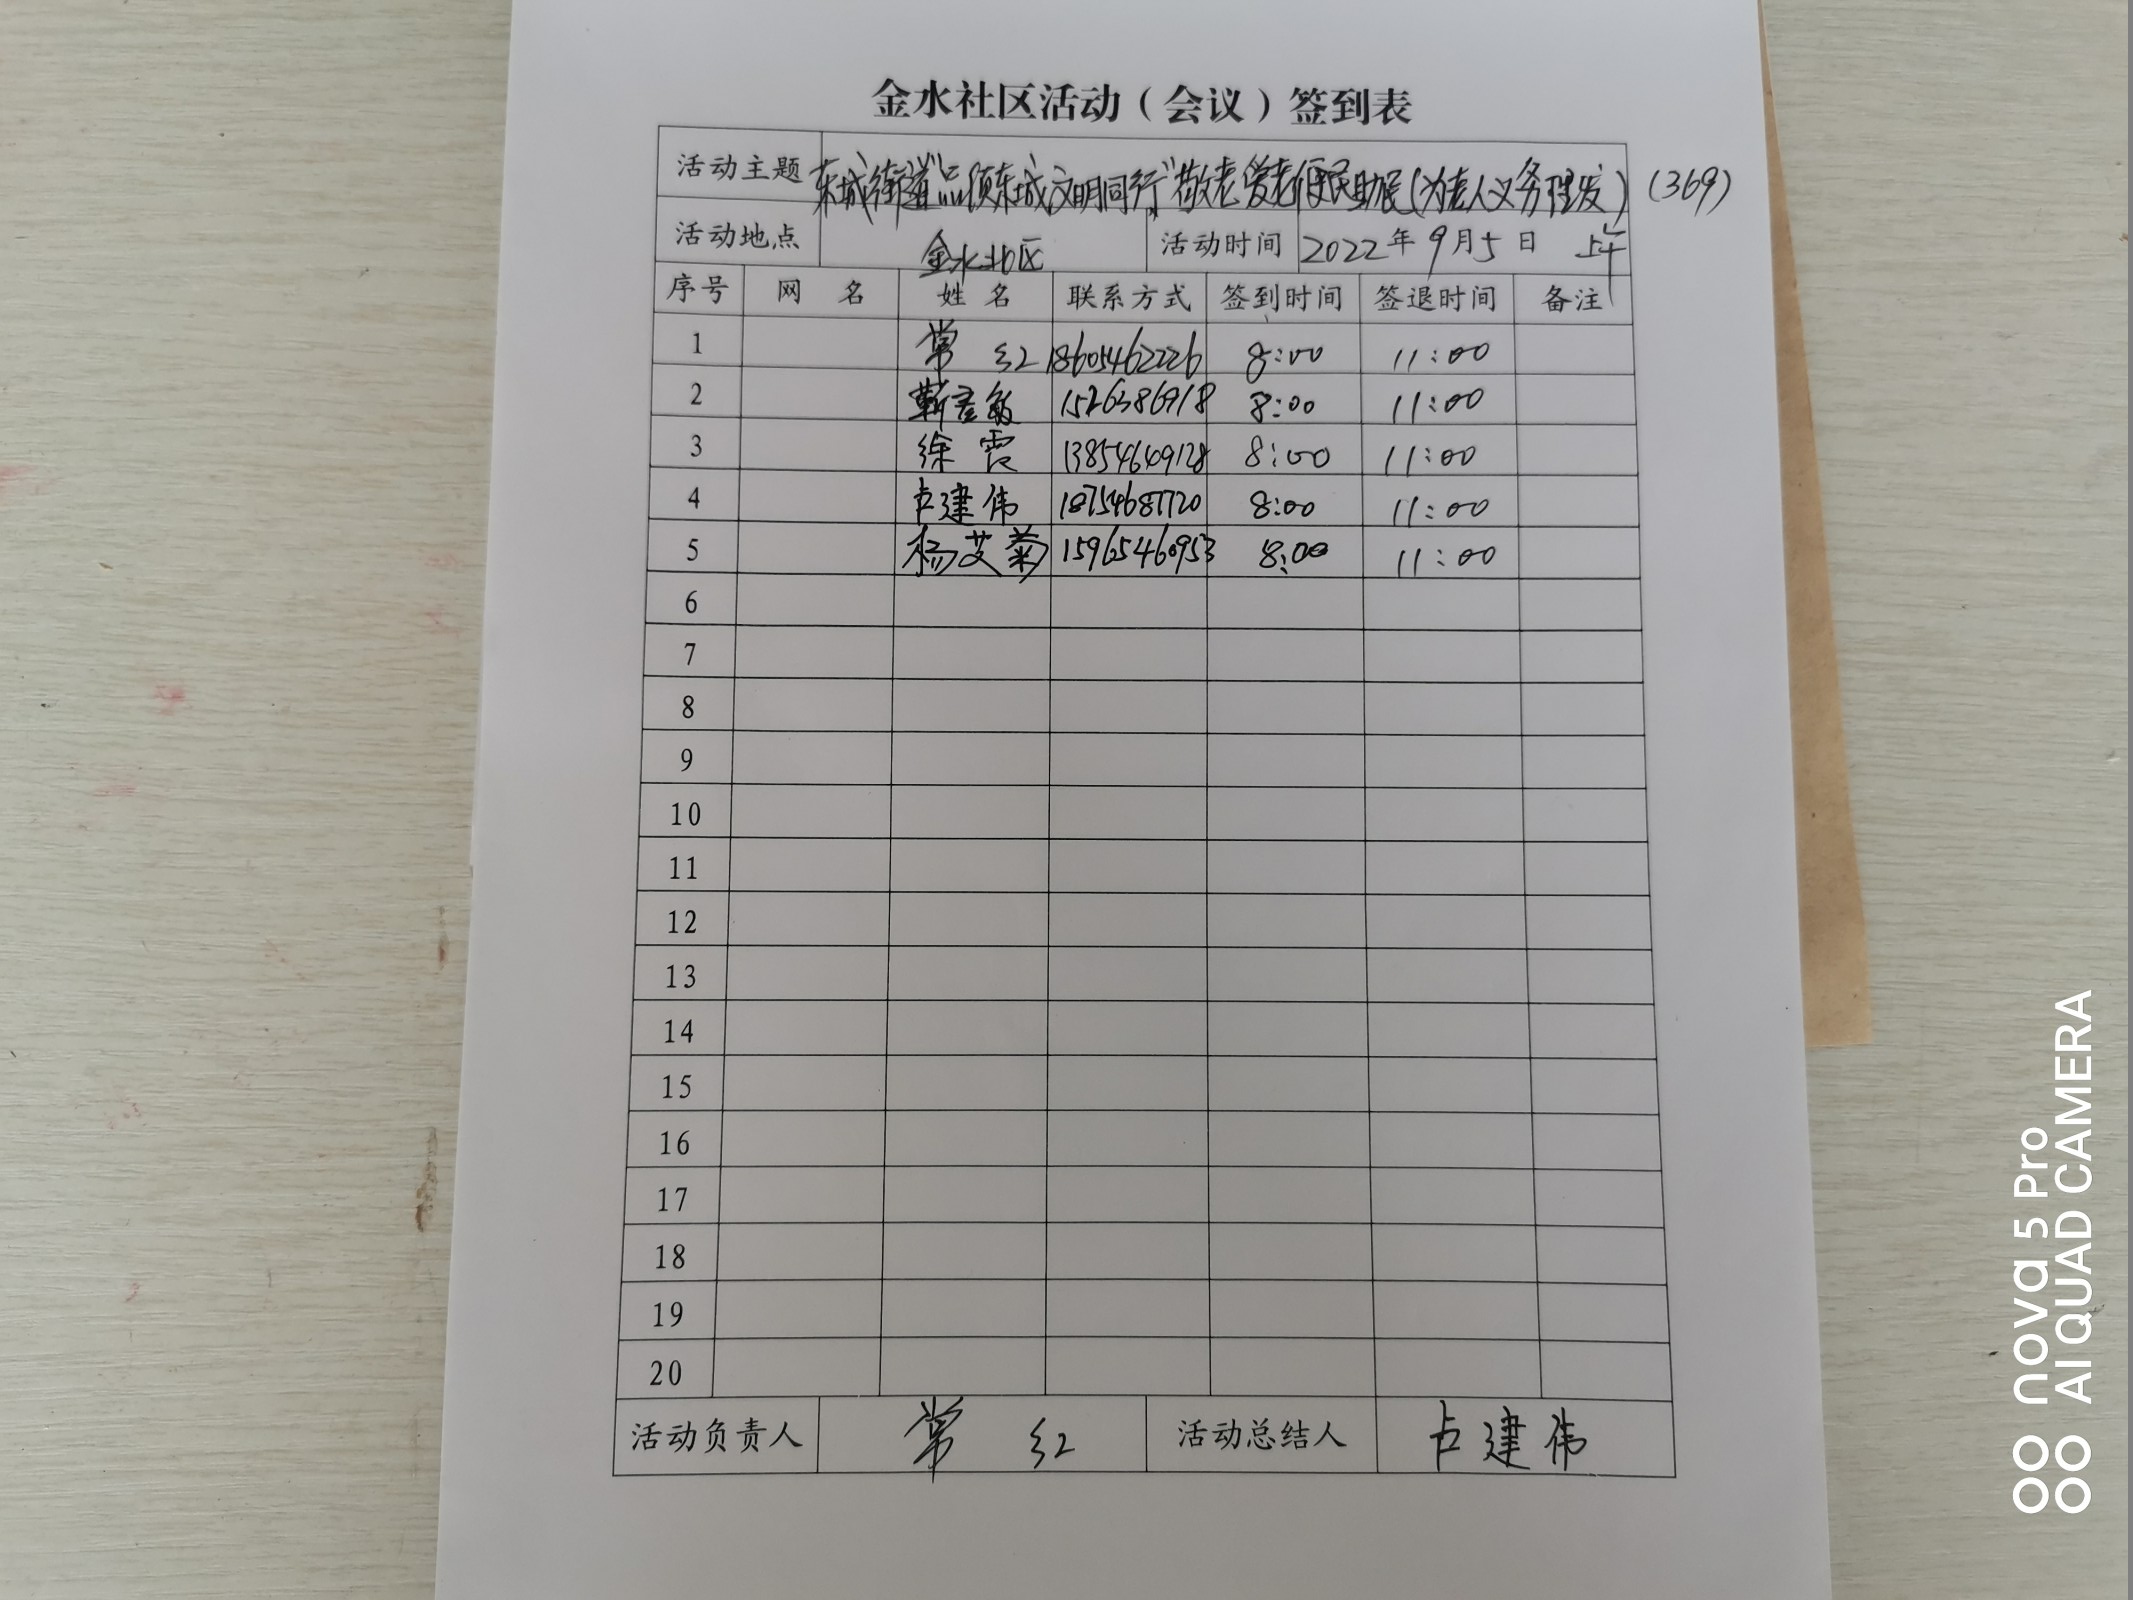 金水社区活动（会议）签到表
活动主题 东城街道"品质东城文明同行"敬老爱老便民助民(为老人义务理发) (369)
活动地点 金水北区 活动时间 2022年9月5日 上午
序号 网名 姓名 联系方式 签到时间 签退时间 备注
1 常红 18605462226 8:00 11:00
2 靳彦敏 8:00 11:00
3 徐霞 13854649128 8:00 11:00
4 卢建伟 18754687720 8:00 11:00
5 杨艾菊 15965460953 8:00 11:00
6
7
8
9
10
11
12
13
14
15
16
17
18
19
20
活动负责人 常红 活动总结人 卢建伟
nova 5 Pro
AI QUAD CAMERA